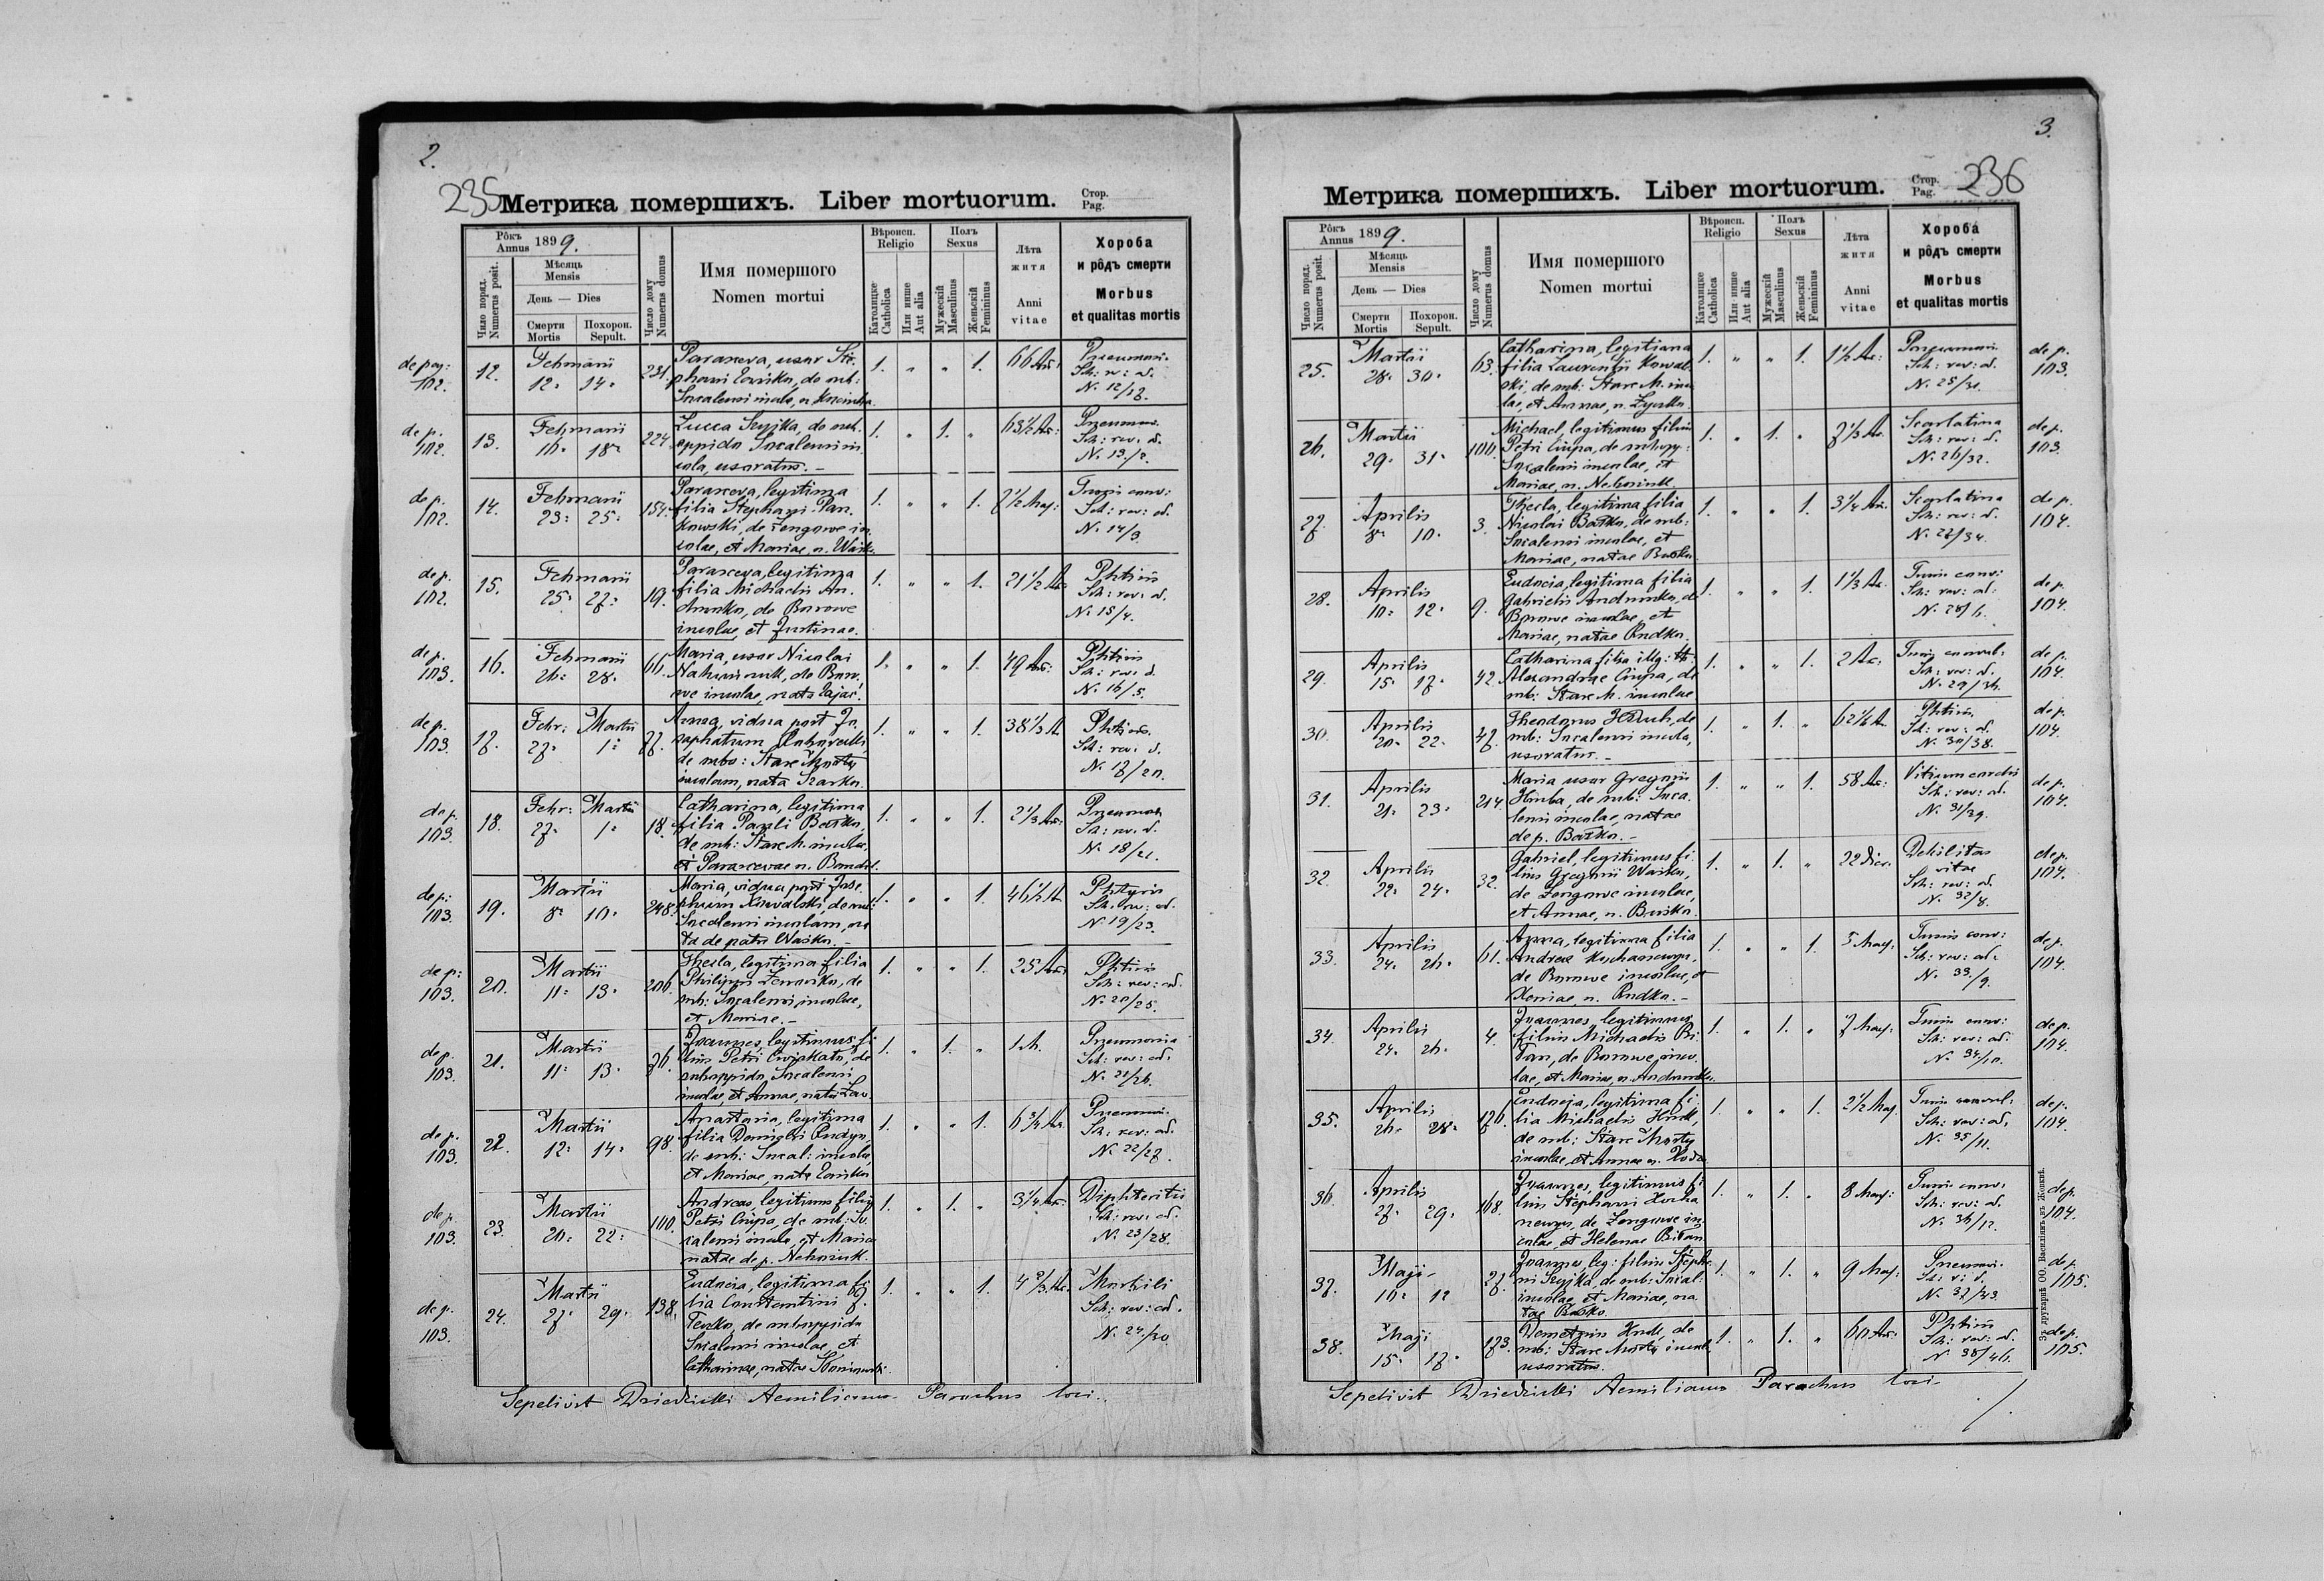 2.
235
Метрика помершихъ. Liber mortuorum.
Стор.
Pag.
Рôкъ
Annus 1899.
Число поряд.
Numerus posit.
Мѣсяць
Mensis
День — Dies
Смерти
Mortis
Похорон.
Sepult.
Число дому
Numerus domus
Имя помершого
Nomen mortui
Вѣроисп.
Religio
Католицке
Catholica
Или инше
Aut alia
Полъ
Sexus
Мужескій
Masculinus
Женьскій
Femininus
Лѣта
житя
Anni
vitae
Хороба
и рôдъ смерти
Morbus
et qualitas mortis
de pag:
102.
12.
Februarii
12. 14.
231.
Parasceva, uxor Ste-
phani
1. " " 1.
66 An:
Pneumon.
N. 12/
de p.
102.
13.
Februarii
16. 18.
224.
Lucca Seyjka, de sub-
oppido Sncalensi in-
cola, uxoratus. –
1. " 1. "
63 1/2 An:
Pneumon.
Sch: rev: d.
N. 13/2.
de p.
102.
14.
Februarii
23. 25.
154.
Parasceva, legitima
filia Stephani Pan-
kowski, de Zengowe in-
colae, et Mariae, n. Waśko
1. " " 1.
Tussis conv:
Sch: rev: d.
N. 14/3
de p.
102.
15.
Februarii
25. 27.
19.
Parasceva, legitima
filia Michaelis An-
drunko, de Borowe
incolae, et Justinae.
1. " " 1.
21 1/2 An
Phtisis
Sch: rev: d.
N. 15/4.
de p.
103.
16.
Februarii
26. 28.
66.
Maria, uxor Nicolai
de Boro-
we incolae, nata Zając.
1. " " 1.
49 An:
Phtisis
Sch: rev: d.
N. 16/5.
de p.
103.
17.
Febr: Martii
27. 1.
27.
Anna, vidua post Jo-
saphatum
de sub: Stare Mosty
incolam, nata Szarko.
1. " " 1.
38 1/2 A
Phtisis
Sch: rev: d.
N. 17/20.
de p.
103.
18.
Febr: Martii
27. 1.
18.
Catharina, legitima
filia Pauli Baśko,
de sub: Stare M. incolae,
et Parascevae n.
1. " " 1.
2 1/3 An:
Pneumon
Sch: rev: d.
N. 18/21.
de p:
103.
19.
Martii
8. 10.
248.
Maria, vidua post Jose-
phum Kowalski, de sub:
Sncalensi incolam, na-
ta de patre Waśko. –
1. " " 1.
46 1/2 A
Phtysis
Sch: rev: d.
N 19/23.
de p:
103.
20.
Martii
11. 13.
206.
Thecla, legitima filia
Philippi de
sub: Sncalensi incolae,
et Mariae. –
1. " " 1.
25 An:
Phtisis
Sch: rev: d.
N. 20/25.
de p.
103.
21.
Martii
11. 13.
76.
Joannes, legitimus fi-
lius Petri de
suboppido Sncalensi
incolae, et Annae, nata
1. " 1. "
1 A.
Pneumonia
Sch: rev: d.
N. 21/26.
de p.
103.
22.
Martii
12. 14.
98.
Anastasia, legitima
filia
de sub: Sncal: incolae,
et Mariae, nata
1. " " 1.
6 An.
Pneumon.
Sch: rev: d.
N. 22/27.
de p.
103.
23.
Martii
20. 22.
100
Andreas, legitimus filius
Petri Ciupa, de sub: Sn-
calensi incola, et Maria
natae de p. Nehoniuk.
1. " 1. "
3 1/4 An:
Diphteritis
Sch: rev: d.
N. 23/28.
de p.
103.
24.
Martii
27. 29.
138.
Eudocia, legitima fi-
lia Constantini
de suboppido
Sncalensi incolae, et
Catharinae, natae
1. " " 1.
4 2/3 An:
Morbili
Sch: rev: d.
N. 24/30
Sepelivit Dziedzicki Aemilianus Parochus loci.
3.
Метрика помершихъ. Liber mortuorum.
Стор.
Pag.
236
Рôкъ
Annus 1899.
Число поряд.
Numerus posit.
Мѣсяць
Mensis
День — Dies
Смерти
Mortis
Похорон.
Sepult.
Число дому
Numerus domus
Имя помершого
Nomen mortui
Вѣроисп.
Religio
Католицке
Catholica
Или инше
Aut alia
Полъ
Sexus
Мужескій
Masculinus
Женьскій
Femininus
Лѣта
житя
Anni
vitae
Хороба
и рôдъ смерти
Morbus
et qualitas mortis
25.
Martii
28. 30.
63.
Catharina, legitima
filia Laurentii Kowal-
ski, de sub: Stare M. inco-
lae, et Annae, n.
1. " " 1.
1 1/2 An:
Pneumon.
Sch: rev: d.
N. 25/31.
de p.
103.
26.
Martii
29. 31.
100.
Michael, legitimus filius
Petri Ciupa, de subopp:
Sncalensi incolae, et
Mariae, n. Nehoniuk
1. " 1. "
7 1/3 An.
Scarlatina
Sch: rev: d.
N. 26/32.
de p.
103.
27.
Aprilis
8. 10.
3.
Thecla, legitima filia
Nicolai Baśko, de sub:
Sncalensi incolae, et
Mariae, natae
1. " " 1.
3 1/4 An.
Scarlatina
Sch: rev: d.
N. 27/34.
de p.
104.
28.
Aprilis
10. 12.
9.
Eudocia, legitima filia
Gabrielis Andrunko, de
Borowe incolae, et
Mariae, natae Rudko.
1. " " 1.
1 1/3 An.
Tussis conv:
Sch: rev: d:
N. 28/6.
de p.
104.
29.
Aprilis
15. 17.
42.
Catharina filia illeg: th:
Alexandrae Ciupa, de
sub: Stare M. incolae
1. " " 1.
2 An:
Tussis convul:
Sch: rev: d.
N. 29/36.
de p.
104.
30.
Aprilis
20. 22.
47.
Theodorus de
sub: Sncalensi incola,
uxoratus. –
1. " 1. "
Phtisis
Sch: rev: d.
N. 30/38.
de p.
104.
31.
Aprilis
21. 23.
214.
Maria uxor Gregorii
de sub: Snca-
lensi incolae, natae
de p. Baśko. –
1. " " 1.
58 An:
Vitium cordis
Sch: rev: d.
N. 31/39.
de p.
104.
32.
Aprilis
22. 24.
32.
Gabriel, legitimus fi-
lius Gregorii Waśko,
de Zengowe incolae,
et Annae, n. Buśko.
1. " 1. "
22 Dier.
Debilitas
vitae
Sch: rev: d.
N. 32/8.
de p.
104.
33.
Aprilis
24. 26.
61.
Anna, legitima filia
Andreae
de Borowe incolae, et
Xeniae, n. Rudko. –
1. " " 1.
5 Mens:
Tussis conv:
Sch: rev: d.
N. 33/9.
de p.
104.
34.
Aprilis
24. 26.
4.
Joannes, legitimus
filius Michaelis Bi-
tan, de Borowe inco-
lae, et Mariae, n. Andrunko.
1. " 1. "
7 Mens:
Tussis conv:
Sch: rev: d.
N. 34/10.
de p.
104.
35.
Aprilis
26. 28.
Eudocia, legitima fi-
lia Michaelis
de sub: Stare Mosty
incolae, et Annae n.
1. " " 1.
2 1/2 Mens.
Tussis convul:
Sch: rev: d.
N. 35/11.
de p.
104.
36.
Aprilis
27. 29.
168.
Joannes, legitimus fi-
lius Stephani Kocha-
de Zengowe in-
colae, et Helenae Bitan
1. " 1. "
8 Mens:
Tussis conv:
Sch: rev: d.
N. 36/12.
de p.
104.
37.
Maji
10. 12
27.
Joannes, leg: filius Stepha-
ni Seyjka, de sub: Sncal:
incolae, et Mariae, na-
tae Baśko.
1. " 1. "
9 Mens:
Pneumon.
Sch: r: d.
N. 37/43.
de p.
105.
38.
Maji
15. 17.
173.
Demetrius de
sub: Stare Mosty incola
uxoratus.
1. " 1. "
60 An:
Phtisis
Sch: rev: d.
N. 38/46.
de p.
105.
Зъ друкарнѣ ОО. Василіянъ въ Жовквѣ.
Sepelivit Dziedzicki Aemilianus Parochus loci